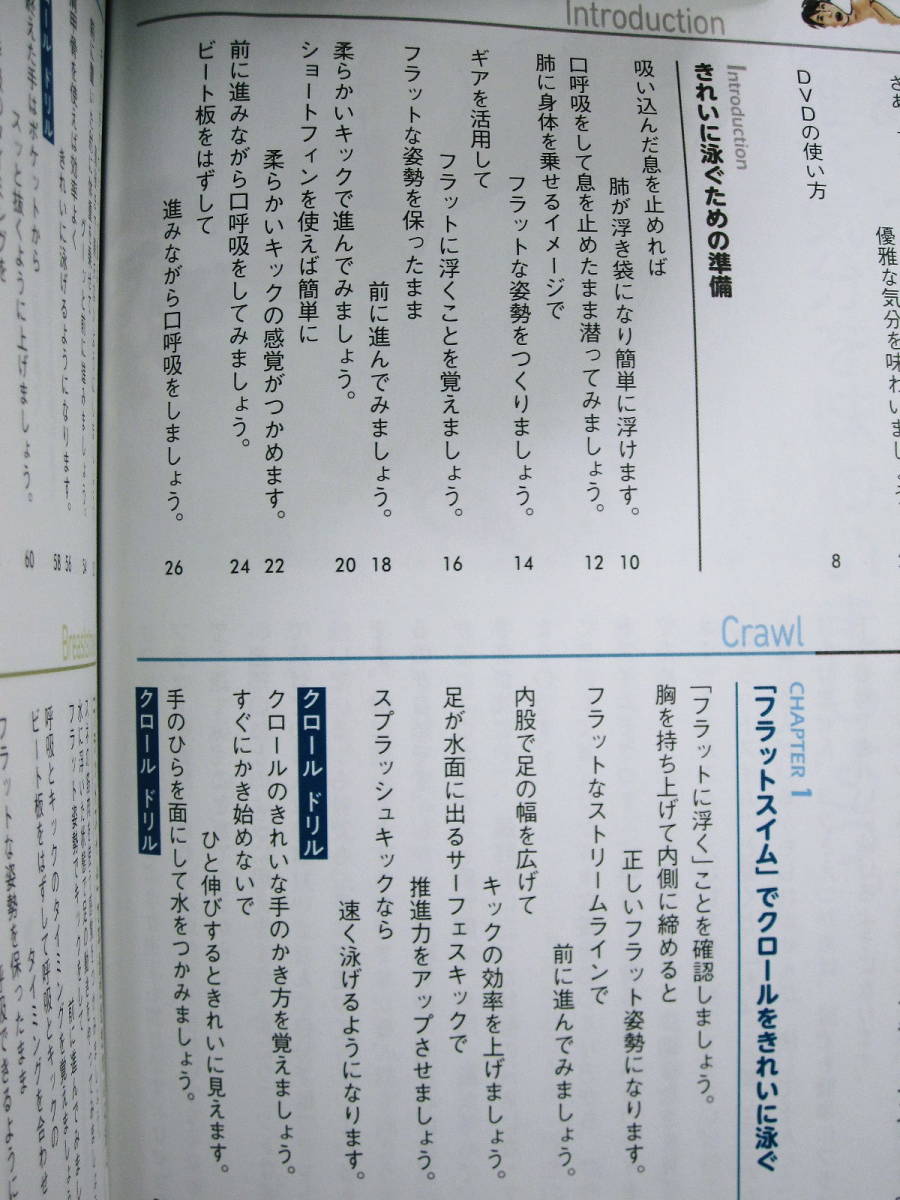 Introduction
優雅な気分を味わいましょう
DVDの使い方
8
Introduction
きれいに泳ぐための準備
吸い込んだ息を止めれば
肺が浮き袋になり簡単に浮けます。
10
口呼吸をして息を止めたまま潜ってみましょう。
12
肺に身体を乗せるイメージで
フラットな姿勢をつくりましょう。
14
ギアを活用して
フラットに浮くことを覚えましょう。
16
フラットな姿勢を保ったまま
前に進んでみましょう。
18
柔らかいキックで進んでみましょう。
20
ショートフィンを使えば簡単に
柔らかいキックの感覚がつかめます。
22
前に進みながら口呼吸をしてみましょう。
24
ビート板をはずして
進みながら口呼吸をしましょう。
26
Crawl
CHAPTER 1
「フラットスイム」でクロールをきれいに泳ぐ
「フラットに浮く」ことを確認しましょう。
胸を持ち上げて内側に締めると
正しいフラット姿勢になります。
フラットなストリームラインで
前に進んでみましょう。
内股で足の幅を広げて
キックの効率を上げましょう。
足が水面に出るサーフェスキックで
推進力をアップさせましょう。
スプラッシュキックなら
速く泳げるようになります。
クロール ドリル
クロールのきれいな手のかき方を覚えましょう。
すぐにかき始めないで
ひと伸びするときれいに見えます。
クロール ドリル
手のひらを面にして水をつかみましょう。
54
56
きれいに泳げるようになります。
58
ール ドリル
手はポケットから
スッと抜くように上げましょう。
60
Breaststr
呼吸とキックのタイミングを覚えましょ
ビート板をはずして呼吸とキックの
タイミングを合わせ
フラットな姿勢を保ったまま
呼吸できるように